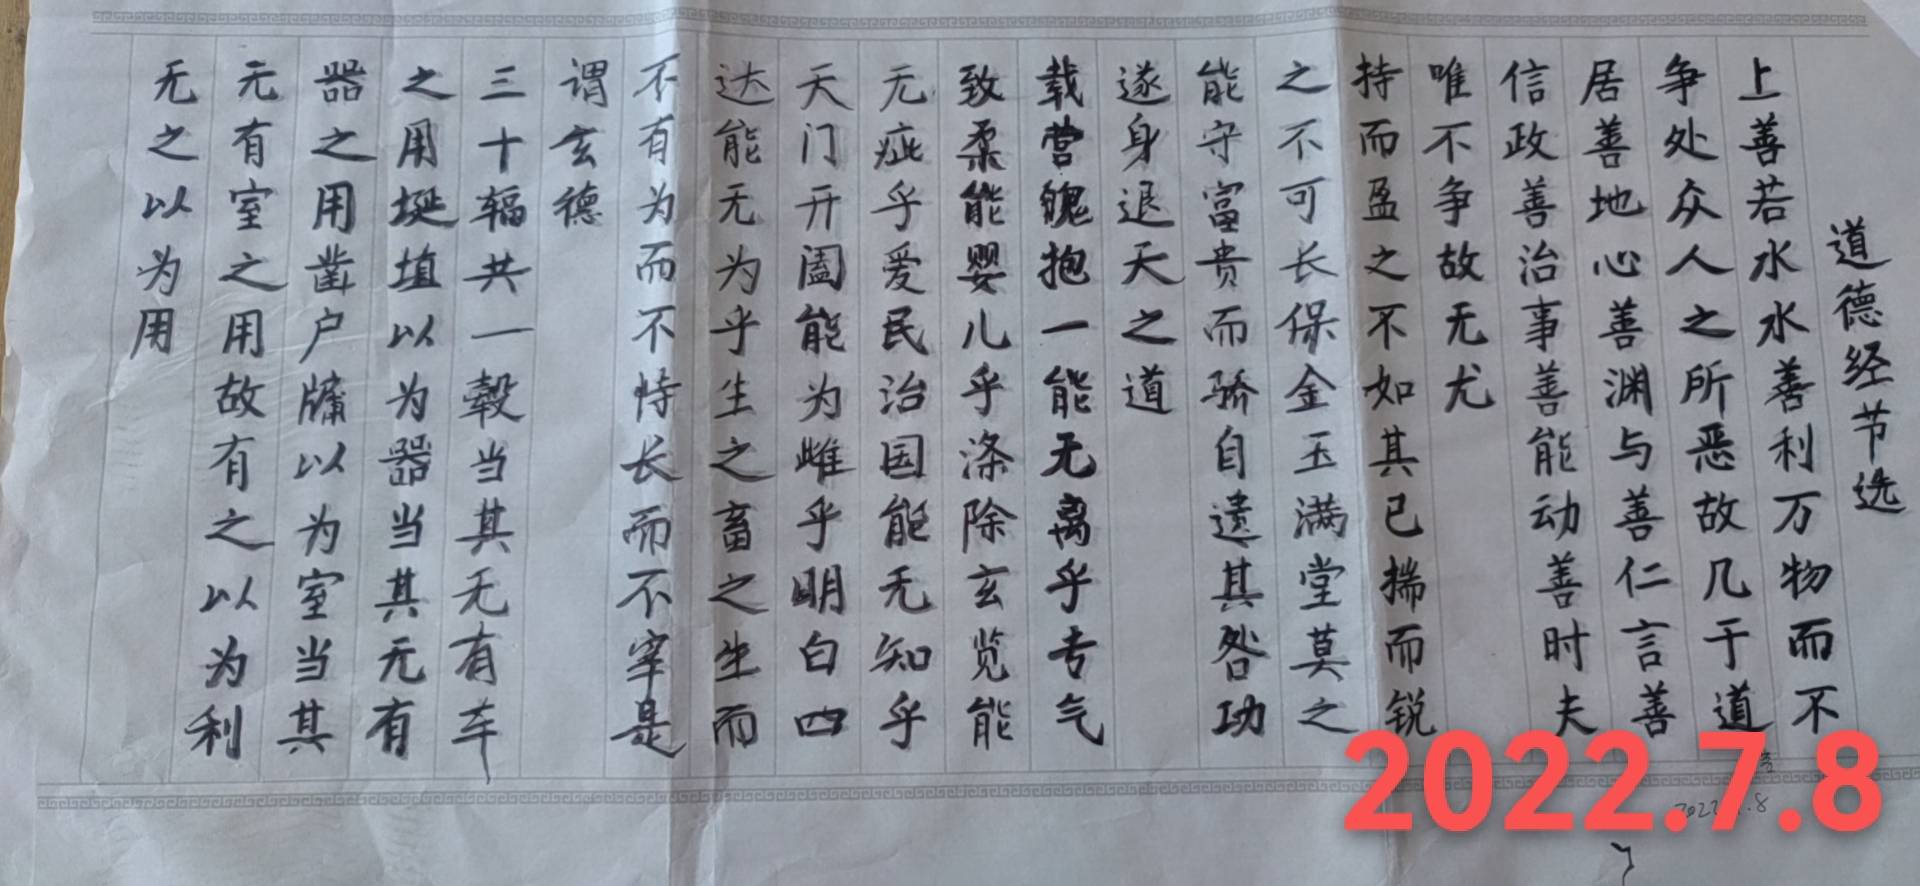 道德经节选
上善若水水善利万物而不
争处众人之所恶故几于道
居善地心善渊与善仁言善
信政善治事善能动善时夫
唯不争故无尤
持而盈之不如其已揣而锐
之不可长保金玉满堂莫之
能守富贵而骄自遗其咎功
遂身退天之道
载营魄抱一能无离乎专气
致柔能婴儿乎涤除玄览能
无疵乎爱民治国能无知乎
天门开阖能为雌乎明白四
达能无为乎生之畜之生而
不有为而不恃长而不宰是
谓玄德
三十辐共一毂当其无有车
之用埏埴以为器当其无有
器之用凿户牖以为室当其
无有室之用故有之以为利
无之以为用
2022.7.8